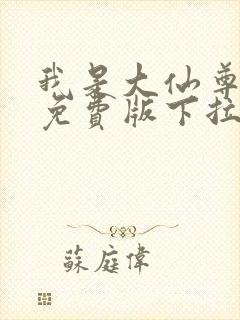 我是大仙尊
免費版下拉
蘇庭偉